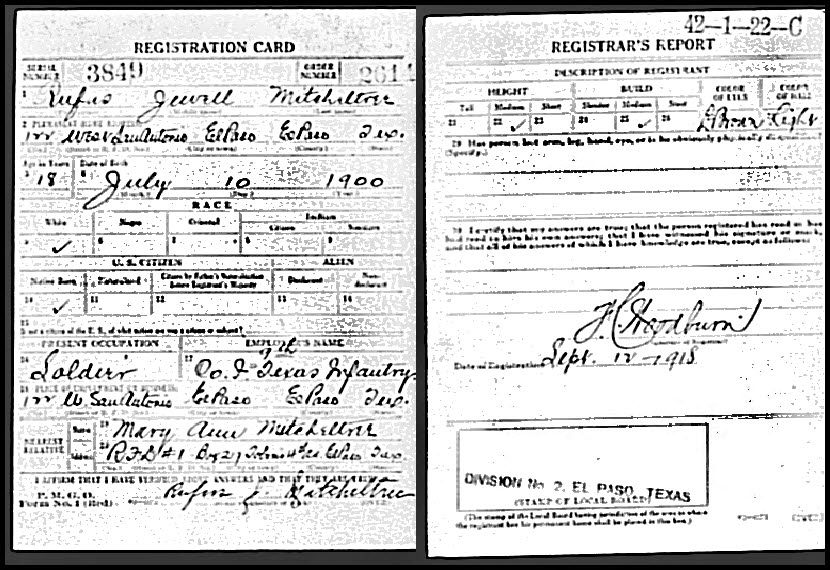 REGISTRATION CARD
SERIAL NUMBER 3849 ORDER NUMBER 2614
1 Rufus Jewell Mitcheltree
2 PERMANENT HOME ADDRESS
122 West San Antonio El Paso El Paso Tex.
Age in Years Date of Birth
3 18 4 July 10 1900
RACE
White Negro Oriental Indian
Citizen Noncitizen
5 ✓ 6 7 8 9
U. S. CITIZEN ALIEN
Native Born Naturalized Citizen by Father's Naturalization Before Registrant's Majority Declarant Non-declarant
10 ✓ 11 12 13 14
15
If not a citizen of the U. S., of what nation are you a citizen or subject?
PRESENT OCCUPATION EMPLOYER'S NAME
16 Soldier 17 Co. I 9th Texas Infantry
18 PLACE OF EMPLOYMENT OR BUSINESS
122 W San Antonio El Paso El Paso Tex.
NEAREST RELATIVE Name 19 Mary Ann Mitcheltree
Address 20 R F D #1 Box 27 El Paso Tex.
I AFFIRM THAT I HAVE VERIFIED ABOVE ANSWERS AND THAT THEY ARE TRUE
P. M. G. O.
Form No. 1 (Red)
Rufus J Mitcheltree
42-1-22-C
REGISTRAR'S REPORT
DESCRIPTION OF REGISTRANT
HEIGHT BUILD COLOR OF EYES COLOR OF HAIR
Tall Medium Short Slender Medium Stout
21 22 ✓ 23 24 25 ✓ 26 Brown Light
29 Has person lost arm, leg, hand, eye, or is he obviously physically disqualified?
(Specify.)
30 I certify that my answers are true; that the person registered has read or has
had read to him his own answers; that I have witnessed his signature or mark,
and that all of his answers of which I have knowledge are true, except as follows:
Woodburn
Date of Registration Sept. 12 - 1918
DIVISION No. 2, EL PASO, TEXAS
(STAMP OF LOCAL BOARD)
(The stamp of the Local Board having jurisdiction of the area in which
the registrant has his permanent home shall be placed in this box.)